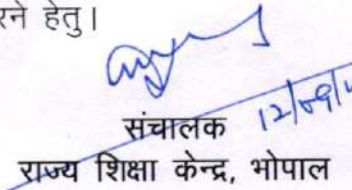 रने हेतु।
संचालक 12/09/
राज्य शिक्षा केन्द्र, भोपाल